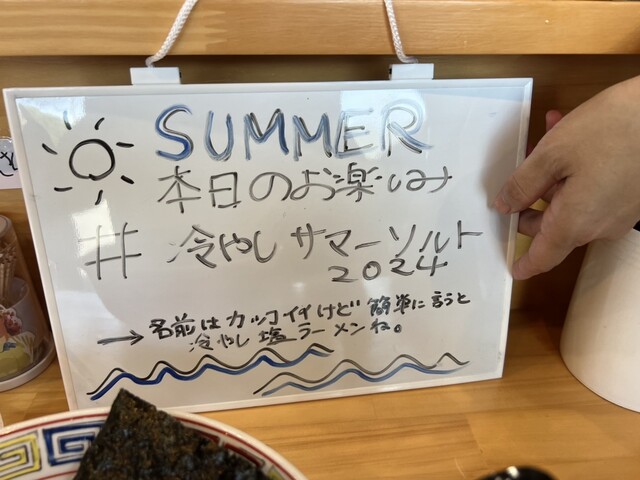 SUMMER
本日のお楽しみ
# 冷やしサマーソルト
2024
→ 名前はカッコイイけど 簡単に言うと
冷やし塩ラーメンね。